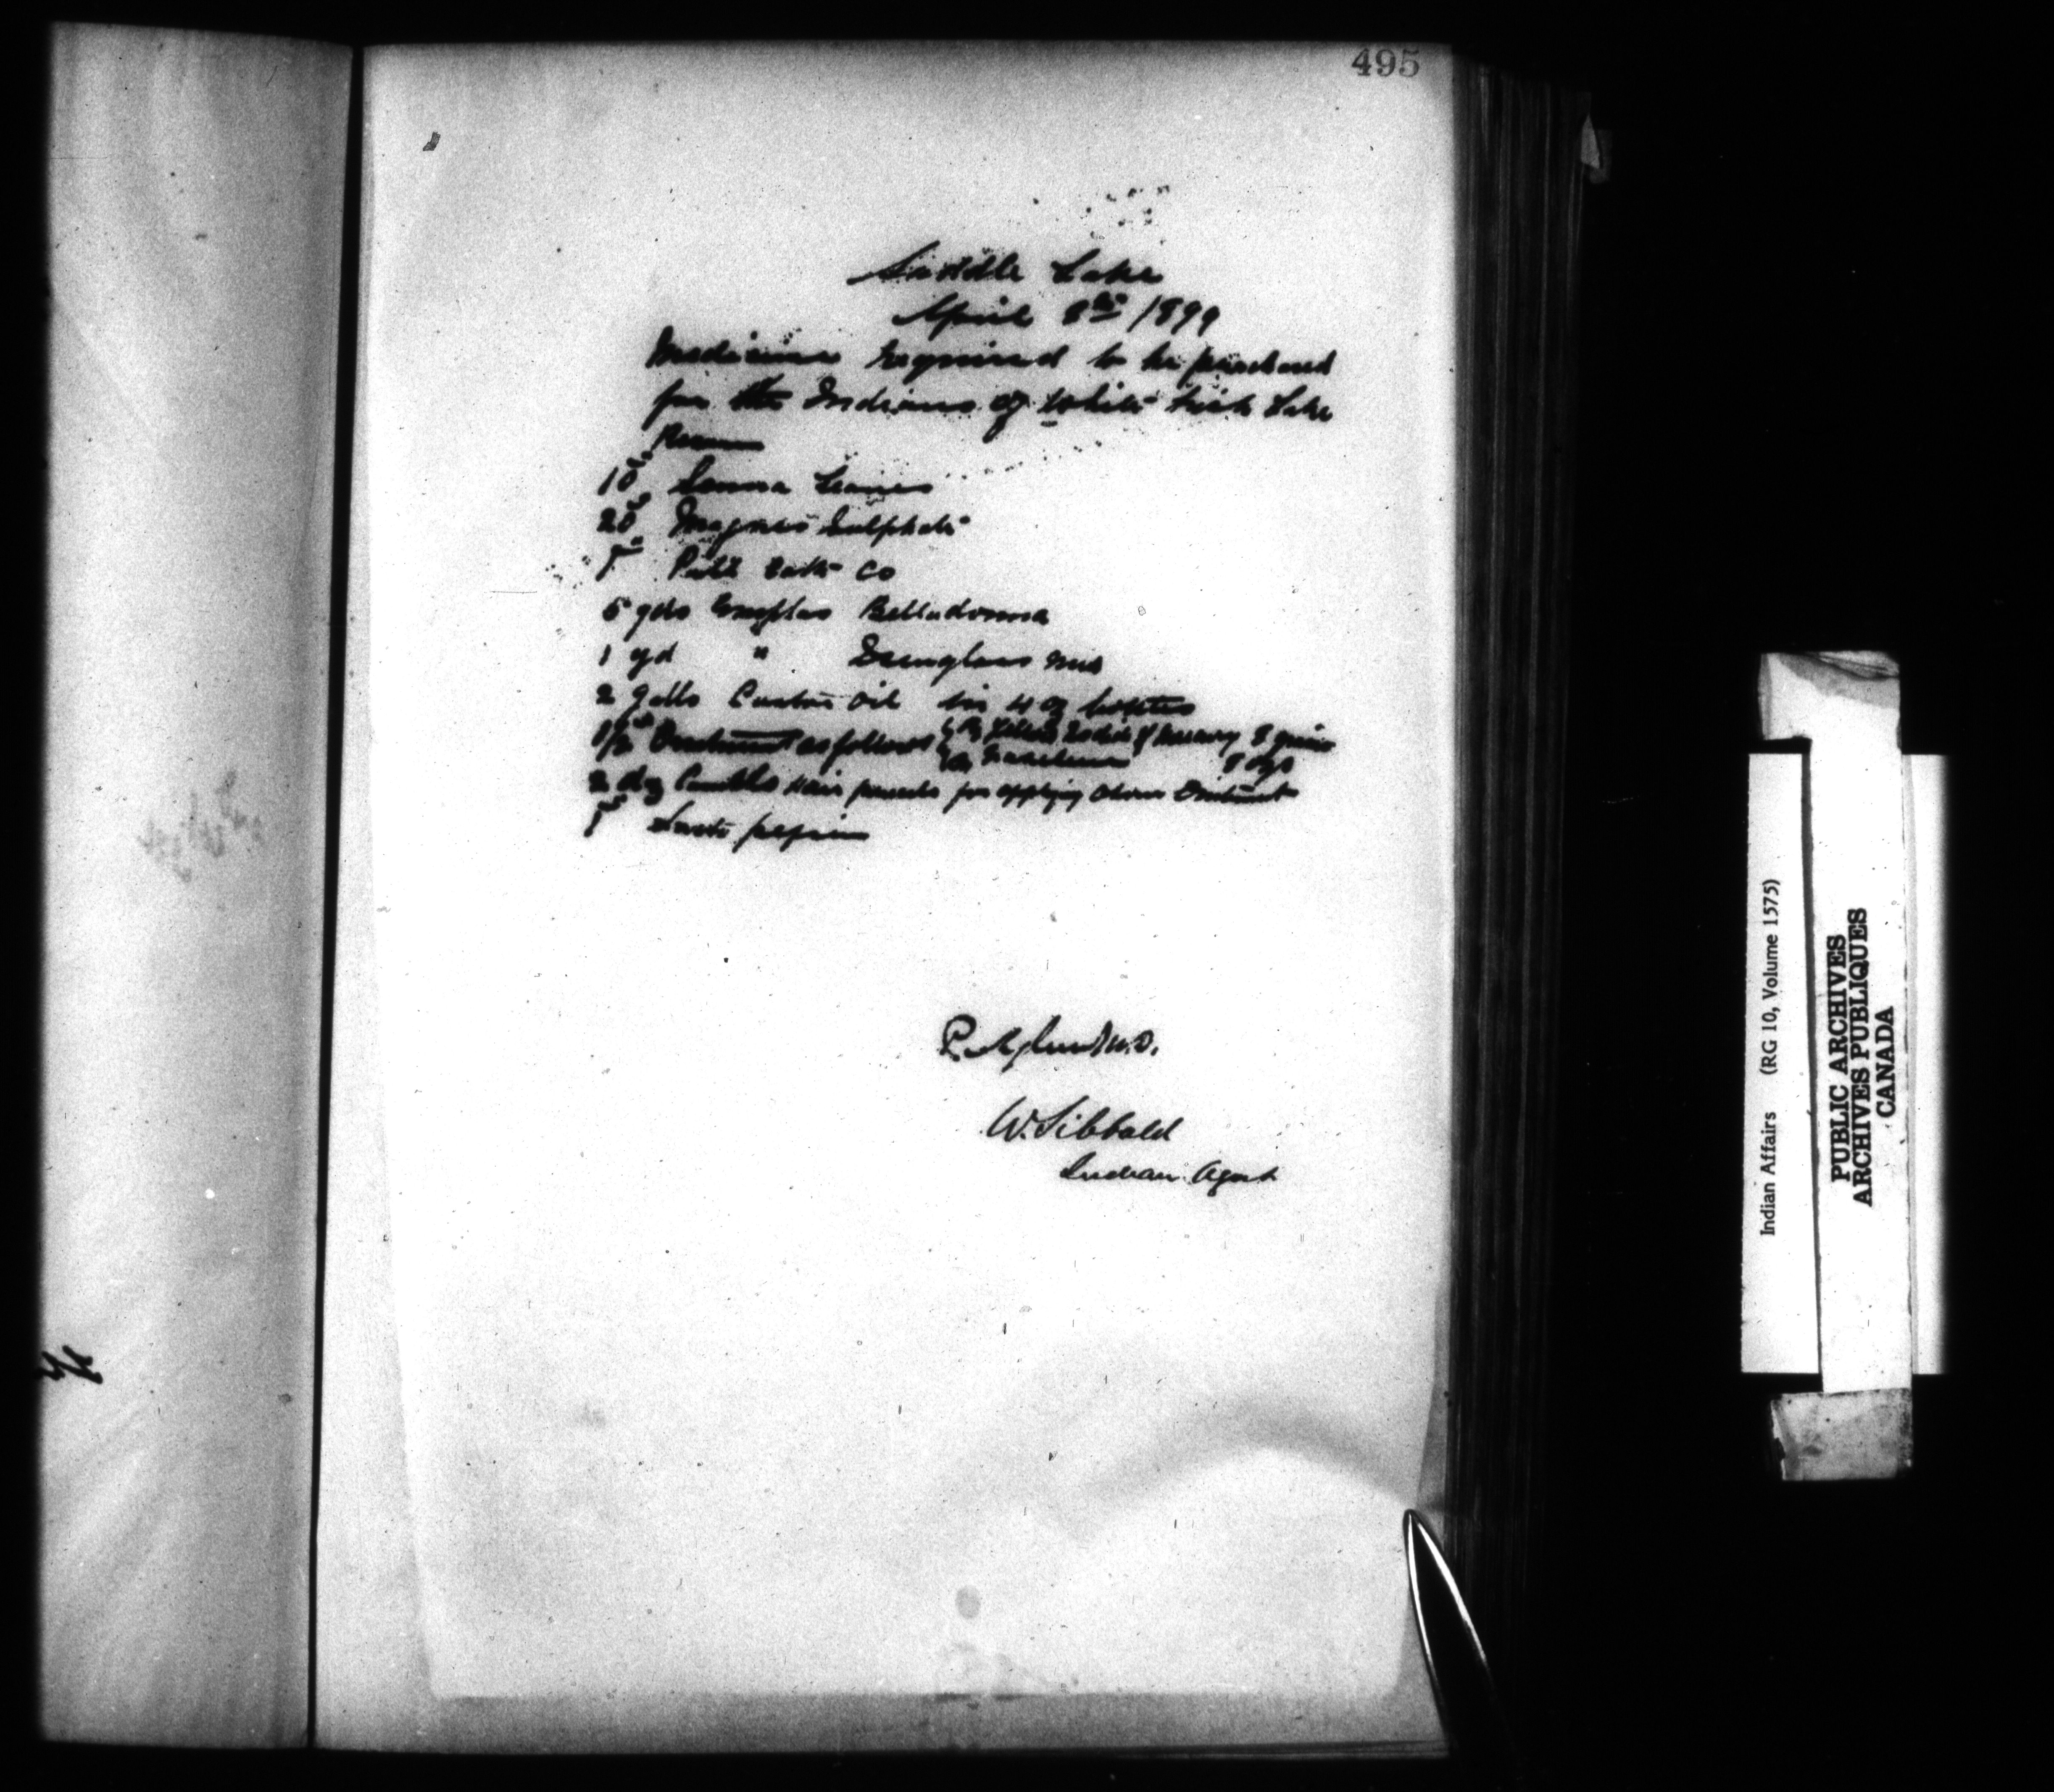 495
Saddle Lake
April 8th 1899
Medicine required to be purchased
for the Indians of White Fish Lake
10 Senna Leaves
20 Magnes Sulphate
1 Pulv Co
5 yds Emplas Belladonna
1 yd "
2 galls Castor Oil in 4 oz bottles
1/2 Ointment as follows Yellow Iodide of Mercury 8 grains
Vaseline
2 doz Hair pencils for applying above Ointment
1 Lacto pepsin
P. M.D.
W. Sibbald
Indian Agent
Indian Affairs (RG 10, Volume 1575)
PUBLIC ARCHIVES
ARCHIVES PUBLIQUES
CANADA